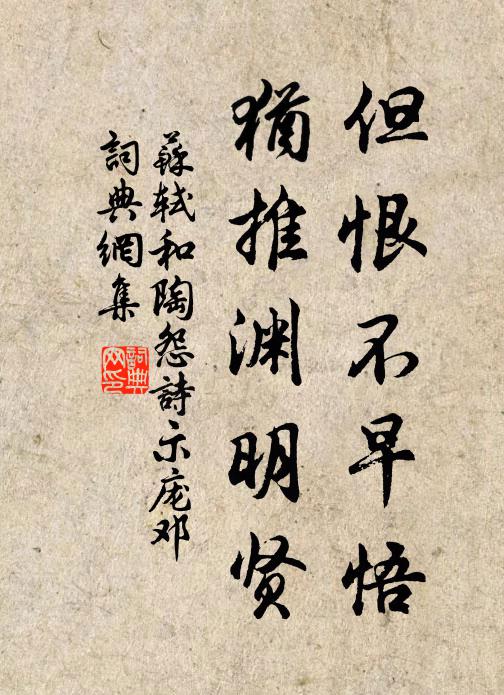 但恨不早悟
猶推渊明贤
蘇軾和陶怨詩示庞邓
詞典網集
詞典网印